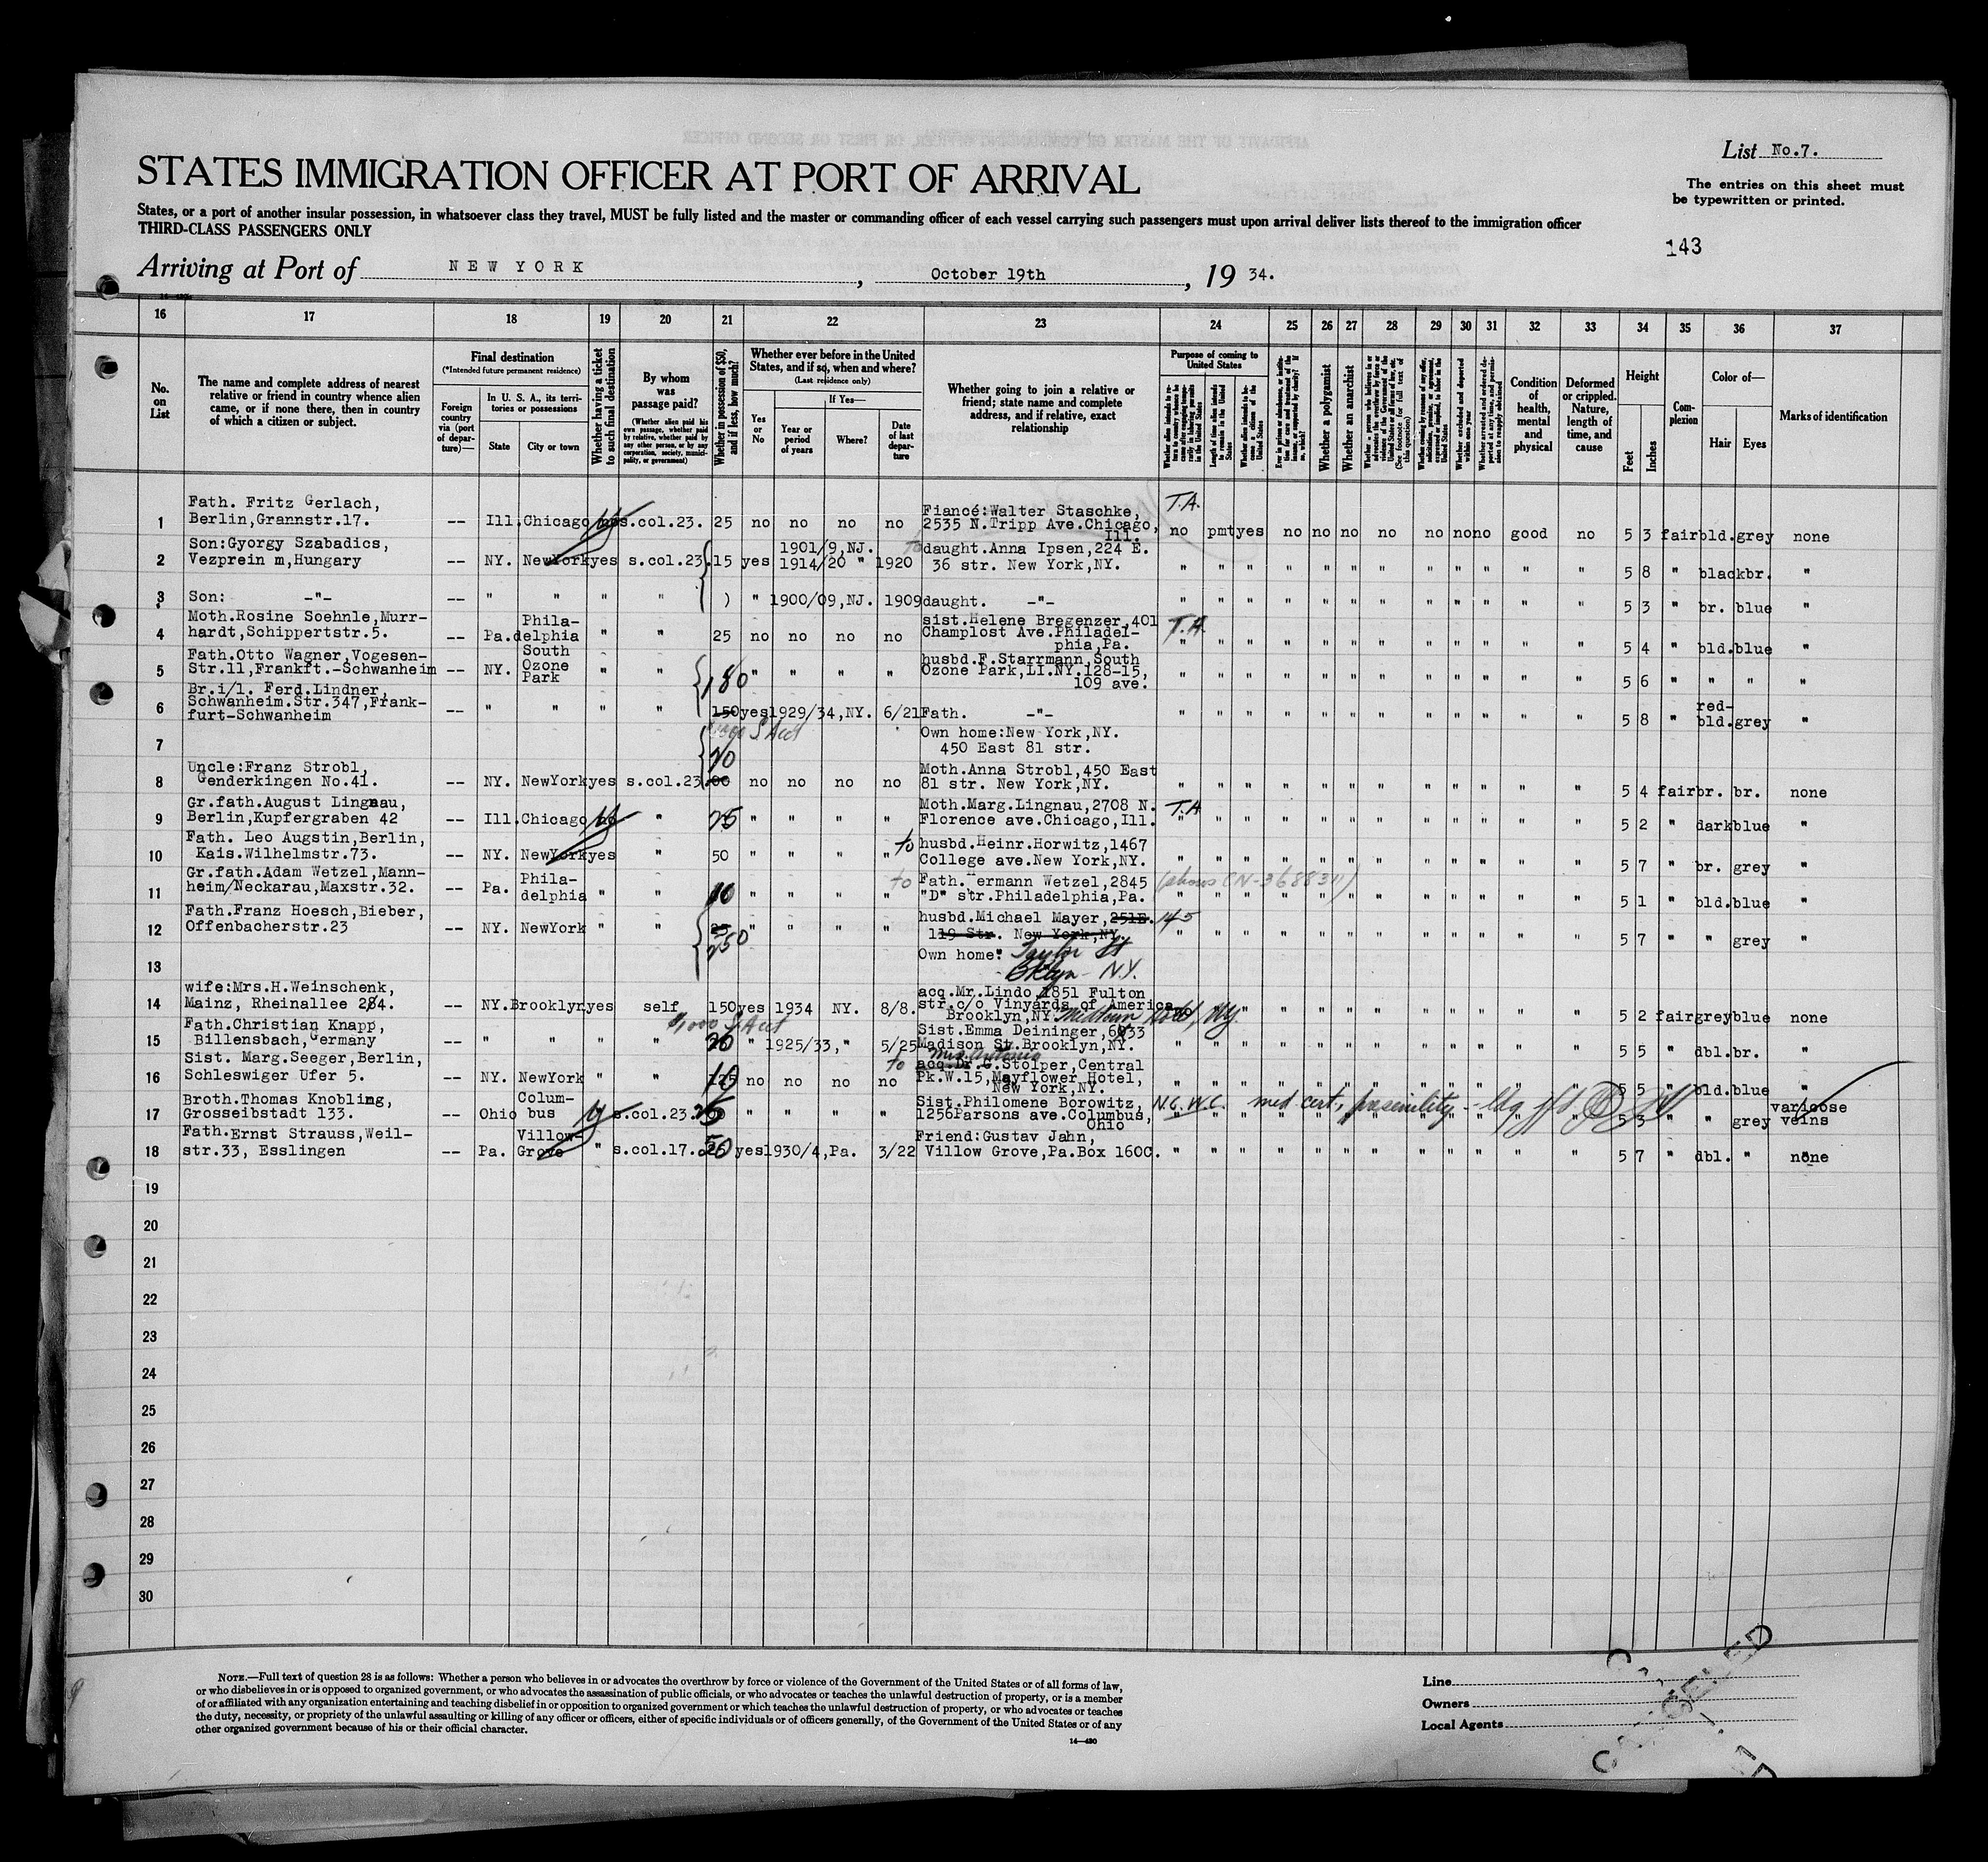 List No.7.
STATES IMMIGRATION OFFICER AT PORT OF ARRIVAL
The entries on this sheet must
be typewritten or printed.
States, or a port of another insular possession, in whatsoever class they travel, MUST be fully listed and the master or commanding officer of each vessel carrying such passengers must upon arrival deliver lists thereof to the immigration officer
THIRD-CLASS PASSENGERS ONLY
143
Arriving at Port of NEW YORK, October 19th, 1934.
16 17 18 19 20 21 22 23 24 25 26 27 28 29 30 31 32 33 34 35 36 37
No. on List
The name and complete address of nearest relative or friend in country whence alien came, or if none there, then in country of which a citizen or subject.
Final destination
(*Intended future permanent residence)
Foreign country via (port of departure)—
In U. S. A., its territories or possessions
State
City or town
Whether having a ticket to such final destination
By whom was passage paid?
(Whether alien paid his own passage, whether paid by relative, whether paid by any other person, or by any corporation, society, municipality, or government)
Whether in possession of $50, and if less, how much?
Whether ever before in the United States, and if so, when and where?
(Last residence only)
Yes or No
If Yes—
Year or period of years
Where?
Date of last departure
Whether going to join a relative or friend; state name and complete address, and if relative, exact relationship
Purpose of coming to United States
Length of time alien intends to remain in the United States
Whether alien intends to become a citizen of the United States
Whether a polygamist
Whether an anarchist
Condition of health, mental and physical
Deformed or crippled. Nature, length of time, and cause
Height
Feet
Inches
Complexion
Color of—
Hair
Eyes
Marks of identification
T.A.
1 Fath. Fritz Gerlach,
Berlin,Grannstr.17. -- Ill. Chicago s.col.23. 25 no no no no Fiancé:Walter Staschke,
2535 N.Tripp Ave.Chicago,
Ill. no pmt yes no no no no no no no good no 5 3 fair bld. grey none
2 Son:Gyorgy Szabadics,
Vezprein m,Hungary -- NY. NewYork yes s.col.23. 15 yes 1901/9,NJ.
1914/20 " 1920 to daught.Anna Ipsen,224 E.
36 str. New York,NY. " " " " " " " " " " " " 5 8 " black br. "
3 Son: -"- -- " " " " ) " 1900/09,NJ. 1909 daught. -"- " " " " " " " " " " " " 5 3 " br. blue "
4 Moth.Rosine Soehnle,Murr-
hardt,Schippertstr.5. -- Pa. Phila-
delphia " " 25 no no no no sist.Helene Bregenzer,401
Champlost Ave.Philadel-
phia,Pa. T.A. " " " " " " " " " " " 5 4 " bld. blue "
5 Fath.Otto Wagner,Vogesen-
Str.11,Frankft.-Schwanheim -- NY. South
Ozone
Park " " 180 " " " " husbd.F.Starrmann,South
Ozone Park,LI.NY.128-15,
109 ave. " " " " " " " " " " " " 5 6 " " " "
6 Br.i/l. Ferd.Lindner,
Schwanheim.Str.347,Frank-
furt-Schwanheim -- " " " " 150 yes 1929/34,NY. 6/21 Fath. -"- " " " " " " " " " " " " 5 8 " red-
bld. grey "
7 Own home:New York,NY.
450 East 81 str.
70
8 Uncle:Franz Strobl,
Genderkingen No.41. -- NY. NewYork yes s.col.23. no no no no Moth.Anna Strobl,450 East
81 str. New York,NY. " " " " " " " " " " " " 5 4 fair br. br. none
9 Gr.fath.August Lingnau,
Berlin,Kupfergraben 42 -- Ill. Chicago " 25 " " " " Moth.Marg.Lingnau,2708 N.
Florence ave.Chicago,Ill. T.A " " " " " " " " " " " 5 2 " dark blue "
10 Fath. Leo Augstin,Berlin,
Kais.Wilhelmstr.73. -- NY. NewYork yes " 50 " " " " to husbd.Heinr.Horwitz,1467
College ave.New York,NY. " " " " " " " " " " " " 5 7 " br. grey "
11 Gr.fath.Adam Wetzel,Mann-
heim/Neckarau,Maxstr.32. -- Pa. Phila-
delphia " " 10 " " " " to Father.Hermann Wetzel,2845
"D" str.Philadelphia,Pa. (shows CN-3688311) " " " " " " " " " " " " 5 1 " bld. blue "
12 Fath.Franz Hoesch,Bieber,
Offenbacherstr.23 -- NY. NewYork " " 25 250 " " " " husbd.Michael Mayer,251E. 145
119 Str. New York,NY. " " " " " " " " " " " " 5 7 " " grey "
13 Own home: Taylor St
Bklyn - N.Y.
14 wife:Mrs.H.Weinschenk,
Mainz, Rheinallee 284. -- NY. Brooklyn yes self 150 yes 1934 NY. 8/8. acq.Mr.Lindo 1851 Fulton
str.c/o Vinyards of America
Brooklyn,NY. Midtown Hotel, NY. " " " " " " " " " " 5 2 fair grey blue none
15 Fath.Christian Knapp,
Billensbach,Germany -- " " " " 20 " 1925/33," 5/25 Sist.Emma Deininger,6033
Madison St.Brooklyn,NY. " " " " " " " " " " " " 5 5 " dbl. br. "
16 Sist. Marg.Seeger,Berlin,
Schleswiger Ufer 5. -- NY. NewYork " " 10 no no no no to Mrs. Antonio
acq.Dr.G.Stolper,Central
Pk.W.15,Mayflower Hotel,
New York,NY. " " " " " " " " " " " " 5 5 " bld. blue "
17 Broth.Thomas Knobling,
Grosseibstadt 133. -- Ohio Colum-
bus s.col.23. " " " " Sist.Philomene Borowitz,
1256Parsons ave.Columbus,
Ohio N.C.W.C. med cert, " " " " " " " " " " " 5 3 " " grey varicose
veins
18 Fath.Ernst Strauss,Weil-
str.33, Esslingen -- Pa. Villow-
Grove " s.col.17. 50 yes 1930/4,Pa. 3/22 Friend:Gustav Jahn,
Villow Grove,Pa.Box 160C. " " " " " " " " " " " " 5 7 " dbl. " none
19
20
21
22
23
24
25
26
27
28
29
30
NOTE.—Full text of question 28 is as follows: Whether a person who believes in or advocates the overthrow by force or violence of the Government of the United States or of all forms of law,
or who disbelieves in or is opposed to organized government, or who advocates the assassination of public officials, or who advocates or teaches the unlawful destruction of property, or is a member
of or affiliated with any organization entertaining and teaching disbelief in or opposition to organized government or which teaches the unlawful destruction of property, or who advocates or teaches
the duty, necessity, or propriety of the unlawful assaulting or killing of any officer or officers, either of specific individuals or of officers generally, of the Government of the United States or of any
other organized government because of his or their official character.
14—430
Line
Owners
Local Agents